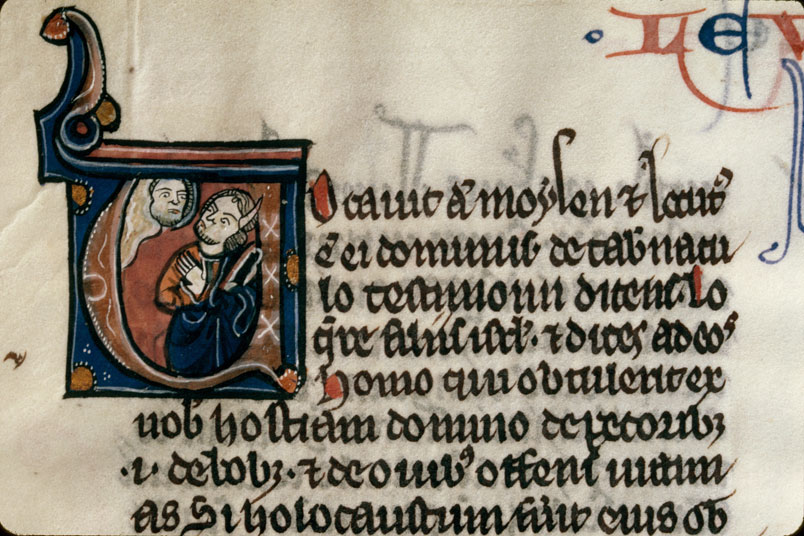 LEV
Vocauit aũ moysen et locut9
ẽ ei dominus de tab̃nacu
lo testimonii dicens. lo
q̃re filiis isrł. ⁊ dices ad eos
homo qui obtulerit ex
uob̃ hostiam domino de pecorib3
.i. de bob3. ⁊ de ouib9 offerens uictim
as Si holocaustum fũit eius ob